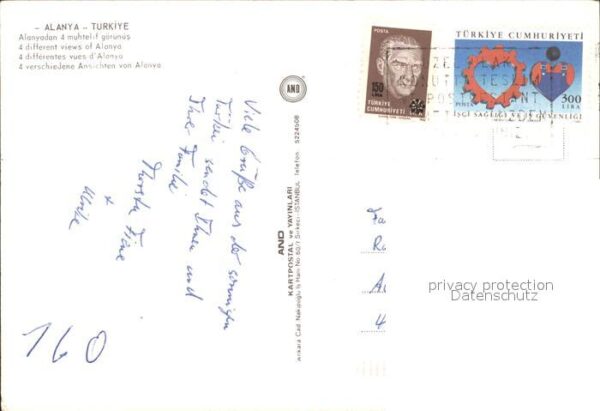 - ALANYA - TURKIYE
Alanyadan 4 muhtelif görünüş
4 different views of Alanya
4 différentes vues d'Alanya
4 verschiedene Ansichten von Alanya
Viele Grüße aus der sonnigen
Türkei sendet Ihnen und
Ihrer Familie
+
Ulrike
160
AND
AND
KARTPOSTAL ve YAYINLARI
Ankara Cad. Nakipoğlu İş Hanı No 60/1 Sirkeci-İSTANBUL Telefon 5224508
POSTA
150
LİRA
TÜRKİYE
CUMHURİYETİ
TÜRKİYE CUMHURİYETİ
POSTA
300
LİRA
İŞÇİ SAĞLIĞI VE İŞ GÜVENLİĞİ
privacy protection
Datenschutz